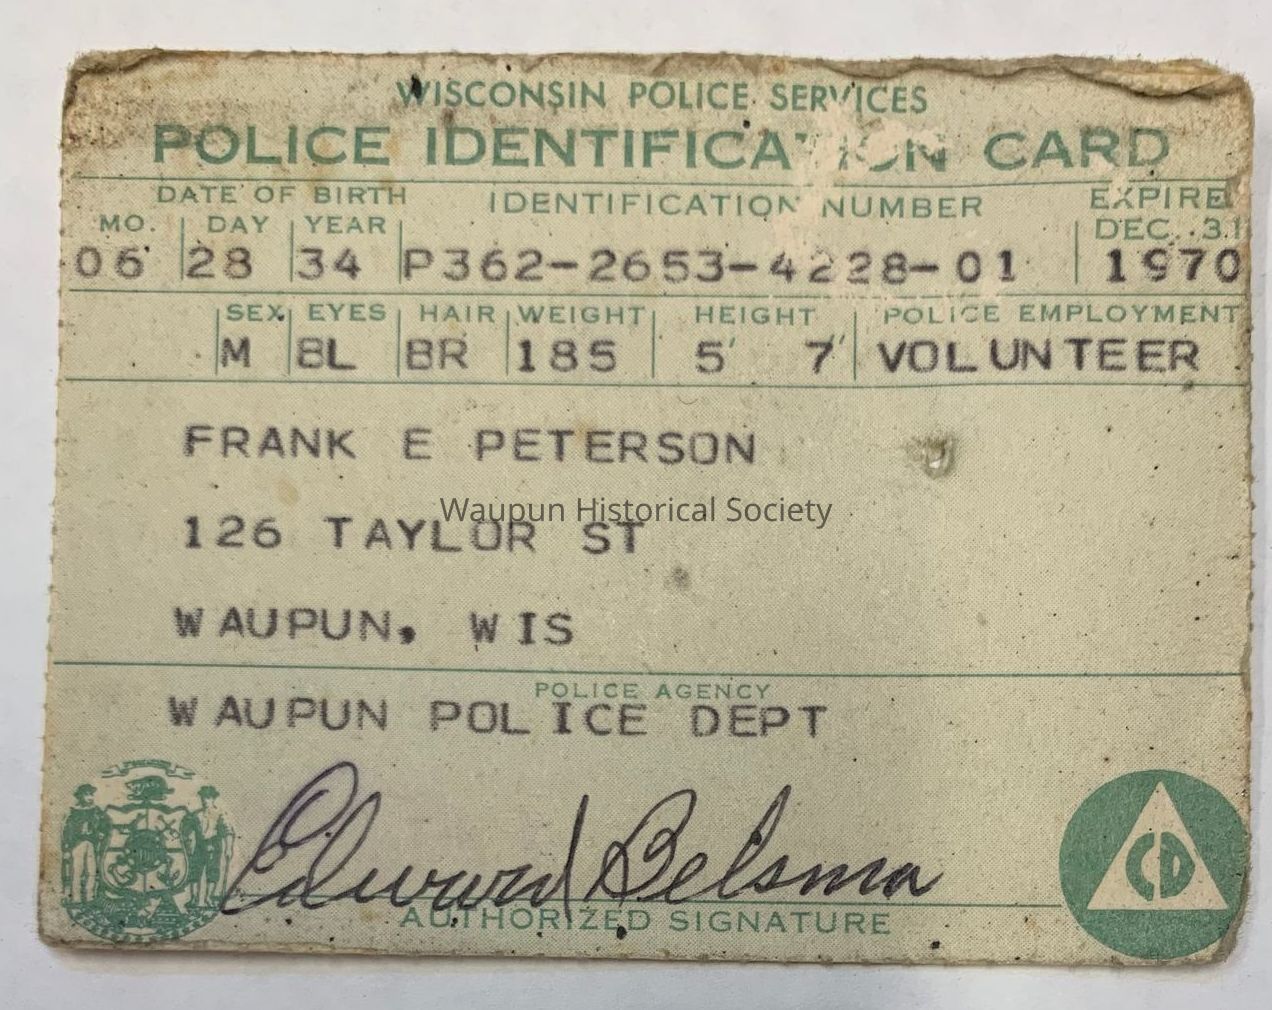 WISCONSIN POLICE SERVICES
POLICE IDENTIFICATION CARD
DATE OF BIRTH IDENTIFICATION NUMBER EXPIRE
MO. DAY YEAR DEC. 31
06 28 34 P362-2653-4228-01 1970
SEX EYES HAIR WEIGHT HEIGHT POLICE EMPLOYMENT
M BL BR 185 5' 7' VOLUNTEER
FRANK E PETERSON
Waupun Historical Society
126 TAYLOR ST
WAUPUN, WIS
POLICE AGENCY
WAUPUN POLICE DEPT
Edward Belsma
AUTHORIZED SIGNATURE
CD